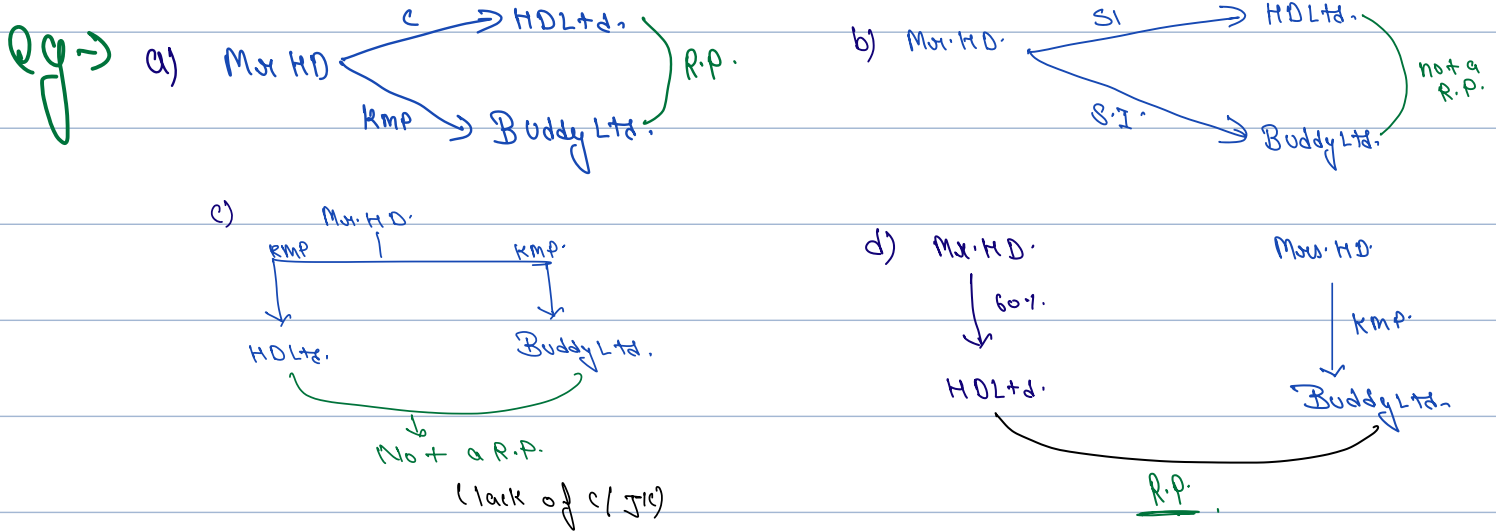 Eg → a) Mr HD
C → HDLtd.
KMP → Buddy Ltd.
R.P.
b) Mr. HD.
SI → HDLtd.
S.I. → Buddy Ltd.
not a
R.P.
c) Mr. HD.
KMP KMP.
HDLtd. Buddy Ltd.
Not a R.P.
(lack of C/JC)
d) Mr. HD. Mrs. HD.
60%. KMP.
HDLtd. Buddy Ltd.
R.P.